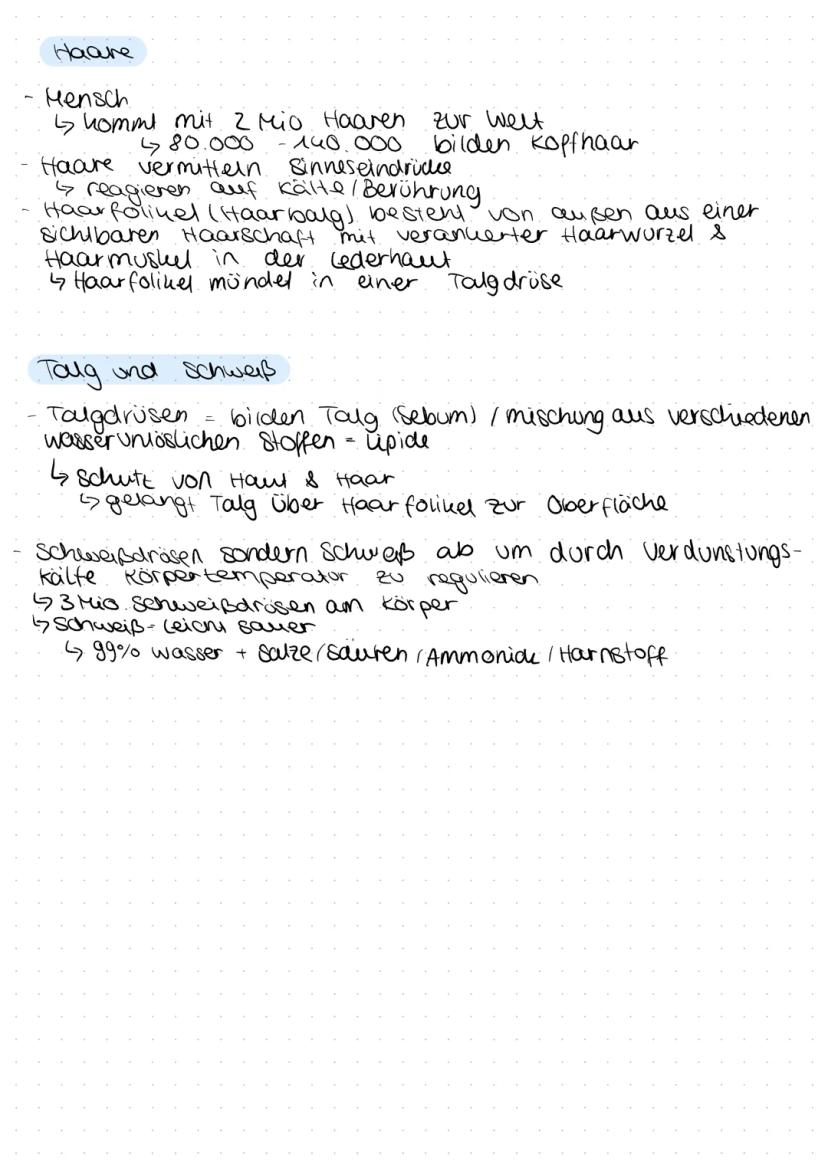 Haare
- Mensch
↳ kommt mit 2 Mio Haaren zur Welt
↳ 80.000 - 140.000 bilden Kopfhaar
- Haare vermitteln Sinneseindrücke
↳ reagieren auf Kälte / Berührung
- Haarfolikel (Haarbalg) besteht von außen aus einer
sichtbaren Haarschaft mit verankerter Haarwurzel &
Haarmuskel in der Lederhaut
↳ Haarfolikel mündet in einer Talgdrüse
Talg und Schweiß
- Talgdrüsen = bilden Talg (Sebum) / mischung aus verschiedenen
wasserunlöslichen Stoffen = Lipide
↳ Schutz von Haut & Haar
↳ gelangt Talg über Haarfolikel zur Oberfläche
- Schweißdrüsen sondern Schweiß ab um durch Verdunstungs-
kälte Körpertemperatur zu regulieren
↳ 3 Mio. Schweißdrüsen am Körper
↳ Schweiß = leicht sauer
↳ 99% Wasser + Salze / Säuren / Ammoniak / Harnstoff